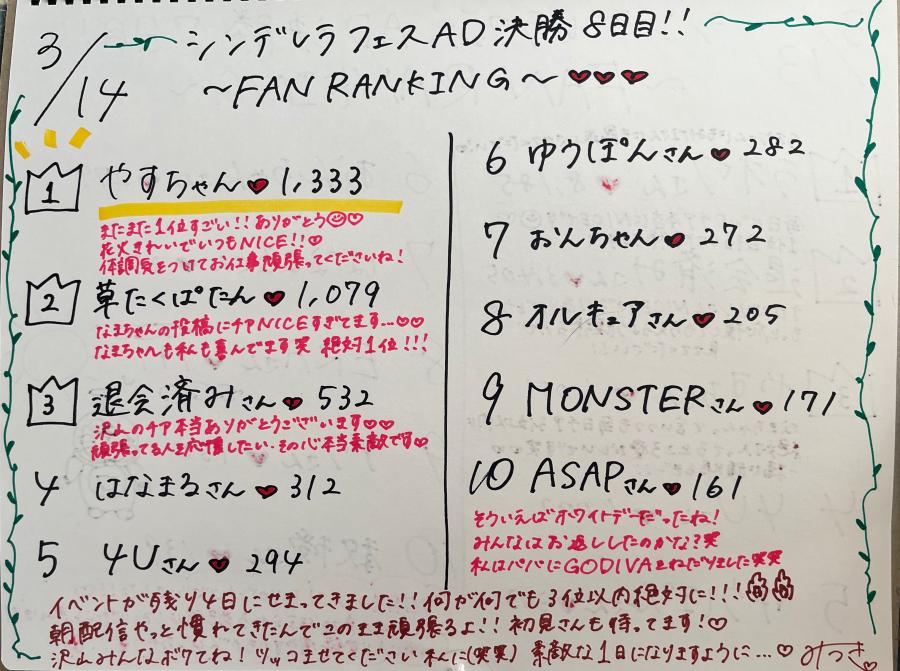 3/14
シンデレラフェスAD 決勝 8日目!!
~FAN RANKING~ ♥♥♥
1 やすちゃん♥1,333
またまた1位すごい!!ありがとう☺♡
花火きれいでいつもNICE!!♡
体調気をつけてお仕事頑張ってくださいね!
2 草たくぽたん♥1,079
なまちゃんの投稿にチアNICEすぎてます…♡♡
なまちゃんも私も喜んでます笑 絶対1位!!!
3 退会済みさん♥532
沢山のチア本当ありがとうございます♡♡
頑張ってる人を応援したい、その心本当素敵です♡♡
4 はなまるさん♥312
5 4Uさん♥294
6 ゆうぽんさん♥282
7 おんちゃん♥272
8 オルキュアさん♥205
9 MONSTERさん♥171
10 ASAPさん♥161
そういえばホワイトデーだったね!
みんなはお返ししたのかな?笑
私はパパにGODIVAをねだりました笑笑
イベントが残り4日にせまってきました!!何が何でも3位以内絶対に!!!
朝配信やっと慣れてきたんでこのまま頑張るよ!!初見さんも待ってます!♡
沢山みんなボケてね!ツッコませてください私に(笑笑) 素敵な1日になりますように…♡ みつき♡